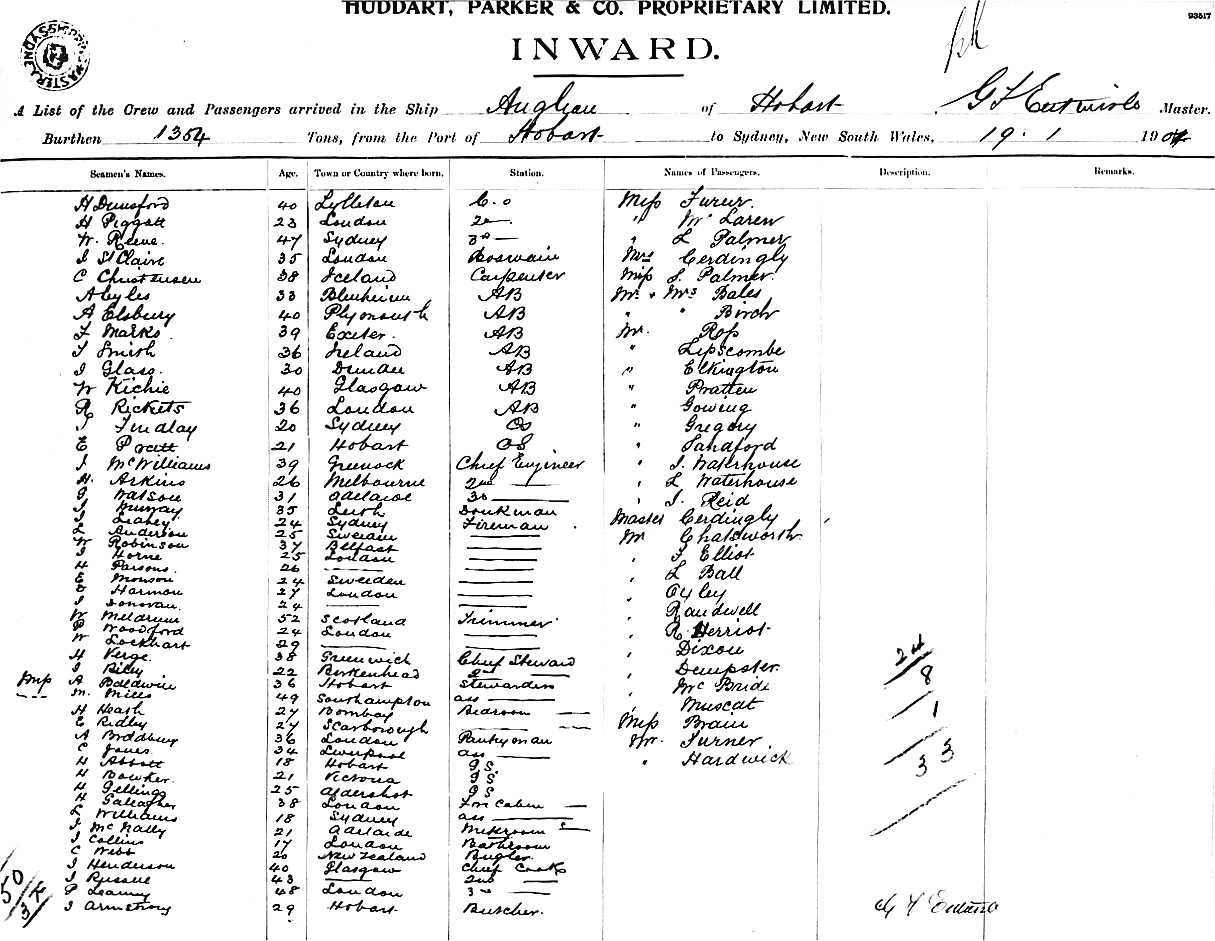 HUDDART, PARKER & CO. PROPRIETARY LIMITED.
93517
INWARD.
A List of the Crew and Passengers arrived in the Ship Anglian of Hobart, Master.
Burthen 1354 Tons, from the Port of Hobart to Sydney, New South Wales, 19. 1 190
Seamen's Names. Age. Town or Country where born. Station. Names of Passengers. Description. Remarks.
H Dunsford 40 Lyttleton C.o Miss
H Piggott 23 London 2nd — " McLaren
W. Reeve 47 Sydney 3rd — " L Palmer
J St Claire 35 London Boswain Mrs Cerdingly
C Christensen 38 Iceland Carpenter Miss J. Palmer
A Gyles 33 Blenheim AB Mr & Mrs Bales
A Elsbury 40 Plymouth AB " " Birch
F Marks 39 Exeter. AB Mr. Ross
T Smith 36 Ireland AB " Lipscombe
J Glass. 30 AB " Elkington
W Kichie 40 Glasgow AB " Pratten
R Rickets 36 London AB " Gowing
J Findlay 20 Sydney OS " Gregory
E Pratt 21 Hobart OS " Sandford
J. McWilliams 39 Greenock Chief Engineer " J. Waterhouse
H. Arkins 26 Melbourne 2nd — " L Waterhouse
G Watson 31 Adelaide 3rd — " J. Reid
J Murray 35 Leith Donkman Master Cerdingly
J Leahey 24 Sydney Fireman Mr Chatsworth
L Anderson 25 Sweden — " J Elliot
W Robinson 37 Belfast — " L Ball
J Horne 25 London —
H Parsons. 26 — — " Oyley
E Monson 24 Sweeden — " Randwell
Harmon 27 London — " R. Herriot
J Donovan. 24 — — " Dixon
W Meldrum 52 Scotland Trimmer. " Dempster
P Woodford 24 London — " McBride
W Lockhart 29 — — " Muscat
H Verge 38 Greenwich Chief Steward Miss Brain
J Riley 22 Birkenhead 2nd — Mr. Turner
Miss A Baldwin 36 Hobart Stewardess " Hardwick
— M. Mills 49 Southampton ass —
H Heath 27 Bombay Bedroom —
E Ridley 27 Scarborough —
A Bradbury 36 London Pantryman
C Jones 34 Liverpool ass —
H Abbott 18 Hobart G S.
H Bowker. 21 Victoria G S
H Gellings 25 Aldershot G S
H Gallagher 38 London Fore Cabin —
L Williams 18 Sydney ass —
J McNally 21 Adelaide Messroom S —
J Collins 17 London Bathroom
C Webb 20 New Zealand Bugler
J Henderson 40 Glasgow Chief Cook
J Russell 43 — 2nd —
P Leanny 48 London 3rd —
J Armstrong 29 Hobart Butcher.
24
8
1
33
50